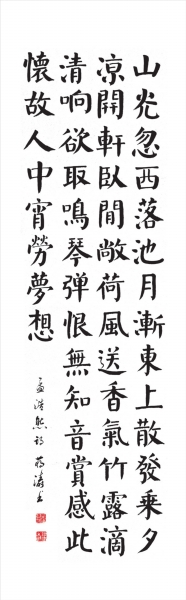 山光忽西落池月漸東上散發乗夕
涼開軒臥閒敞荷風送香氣竹露滴
清响欲取鳴琴弹恨無知音賞感此
懷故人中宵勞夢想
孟浩然诗